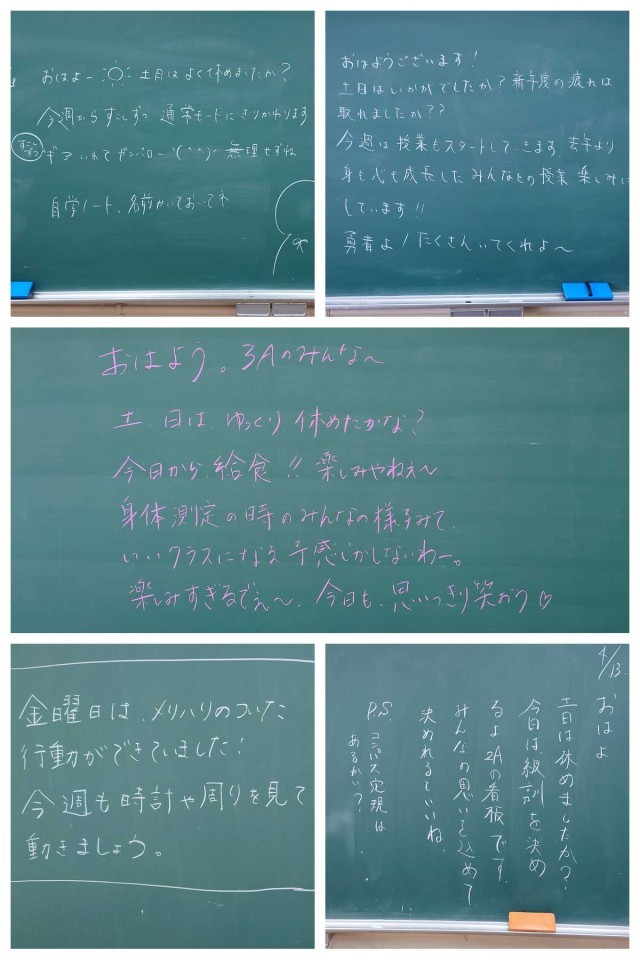 おはよー 土日はよく休めましたか?
今週から すこしずつ 通常モードにきりかわります
すこしずつ ギアいれてガンバロー'(^^)' 無理せずね
自学ノート、名前かいておいてネ
おはようございます!
土日はいかがでしたか?新年度の疲れは
取れましたか??
今週は授業もスタートしていきます。去年より
身も心も成長したみんなとの授業 楽しみに
しています!!
勇者よ!たくさんいてくれよ〜
おはよう。3Aのみんな〜
土、日は、ゆっくり、休めたかな?
今日から、給食!!楽しみやねぇ〜
身体測定の時のみんなの様子みて、
いいクラスになる予感しかしないわー。
楽しみすぎるでぇ〜、今日も、思いっきり笑おう♡
金曜日は、メリハリのついた
行動ができていました!
今週も時計や周りを見て
動きましょう。
4/13
おはよ
土日は休めましたか?
今日は級訓を決め
るよ 2Aの看板です
みんなの思いを込めて
決めれるといいね、
P.S. コンパス定規は
あるかい?